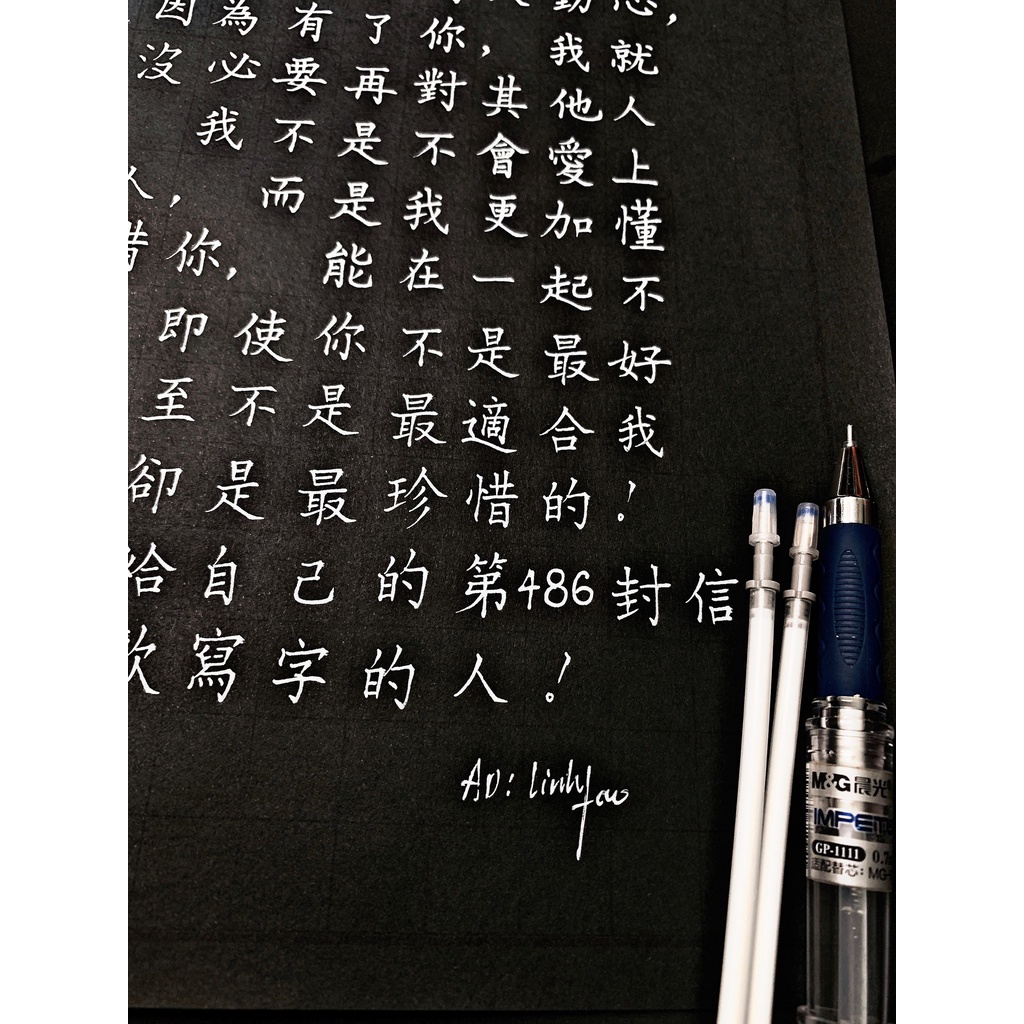 因為有了你，我就
沒必要再對其他人
我不是不會愛上
而是我更加懂
你，能在一起不
即使你不是最好
至不是最適合我
卻是最珍惜的！
給自己的第486封信
寫字的人！
AD: linh
M&G 晨光
IMPE
GP-1111 0.7
匹配替芯: MG-